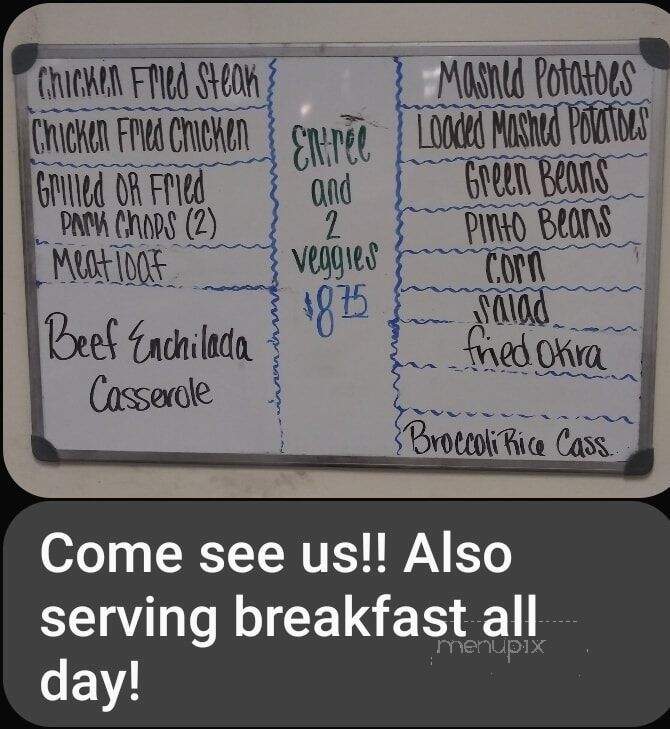 Chicken Fried Steak
Chicken Fried Chicken
Grilled OR Fried
Pork Chops (2)
Meatloaf
Beef Enchilada
Casserole
Entrée
and
2
veggies
$8.75
Mashed Potatoes
Loaded Mashed Potatoes
Green Beans
Pinto Beans
Corn
Salad
fried Okra
Broccoli Rice Cass.
Come see us!! Also
serving breakfast all
day!
menupix